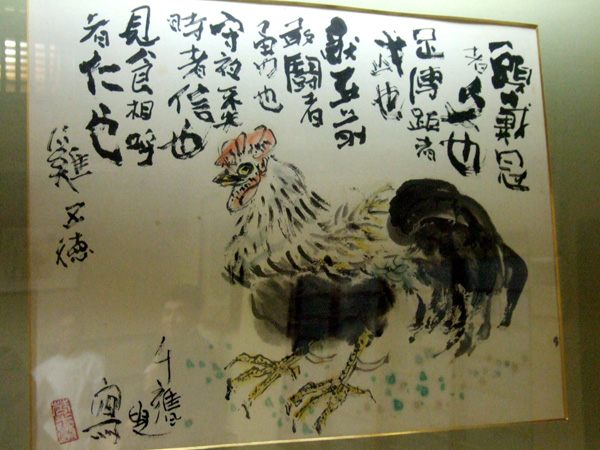 頭戴冠
者文也
足傅距者
武也
敵在前
敢闘者
勇也
守夜不失
時者信也
見食相呼
者仁也
五徳